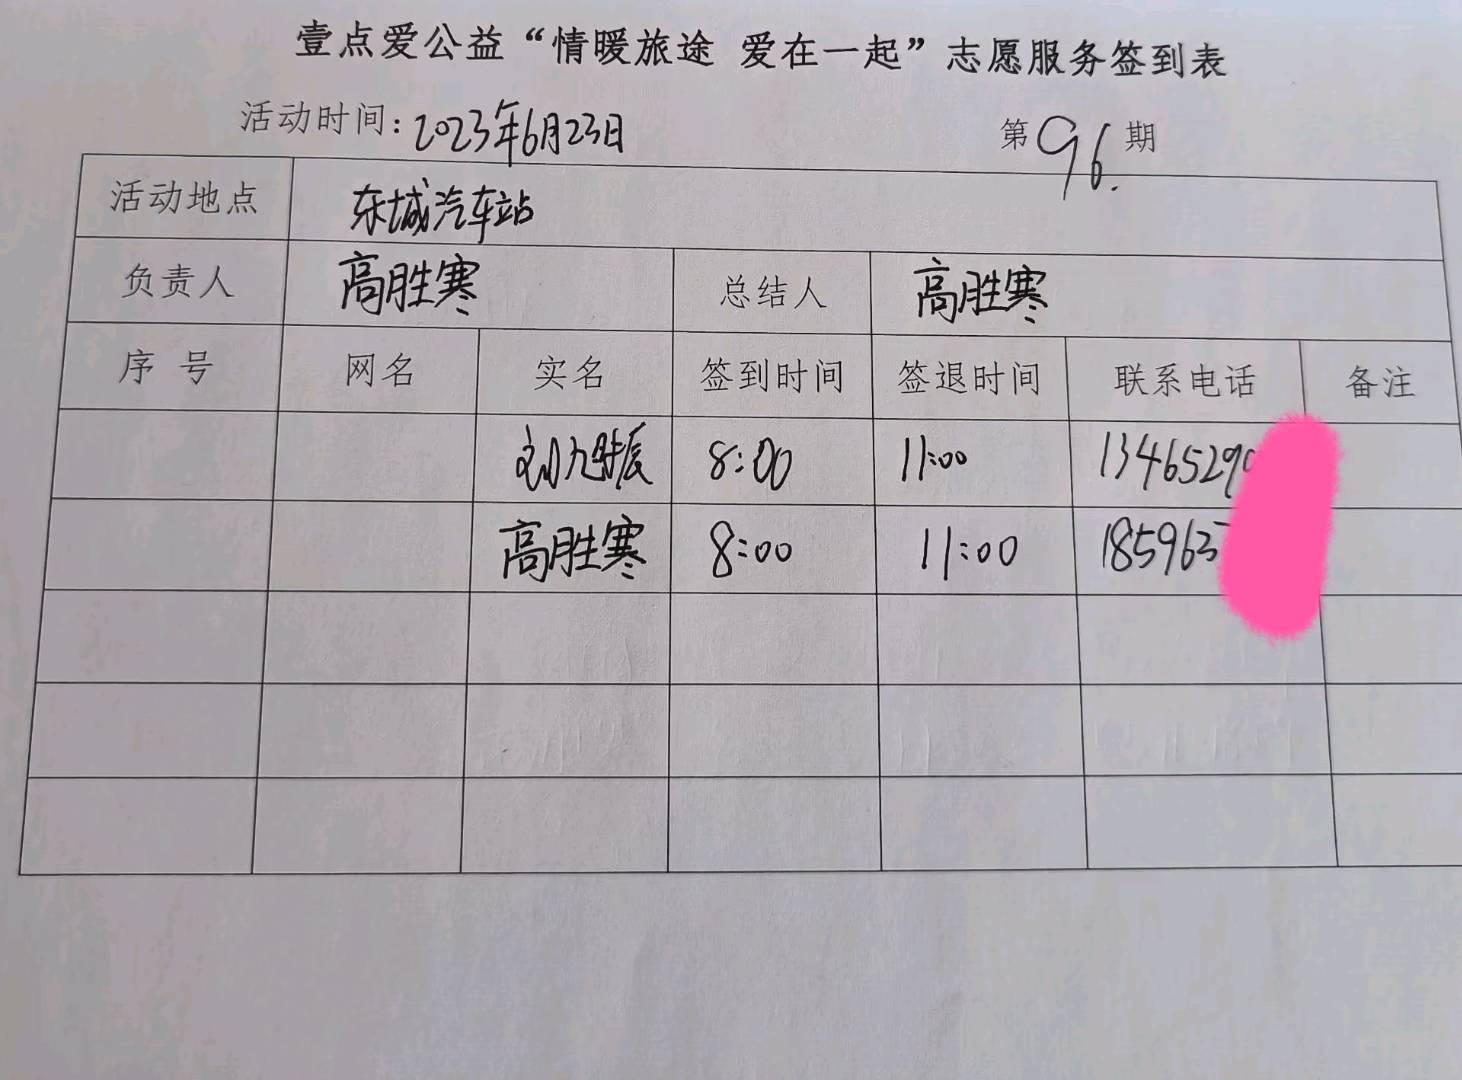 壹点爱公益“情暖旅途 爱在一起”志愿服务签到表
活动时间:2023年6月23日 第96.期
活动地点 东城汽车站
负责人 高胜寒 总结人 高胜寒
序号 网名 实名 签到时间 签退时间 联系电话 备注
刘 8:00 11:00 1346529
高胜寒 8:00 11:00 185963